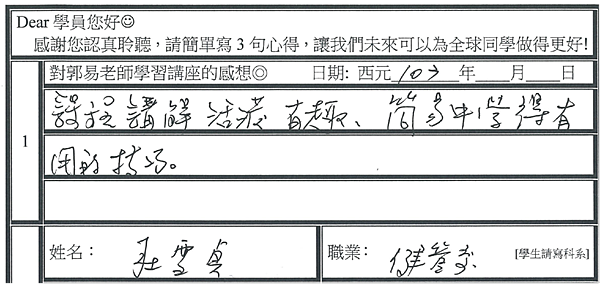 Dear 學員您好☺
感謝您認真聆聽，請簡單寫 3 句心得，讓我們未來可以為全球同學做得更好!
對郭易老師學習講座的感想◎ 日期: 西元 103 年 月 日
1
課程講解活潑有趣、簡易中學得有
用的技巧。
姓名： 莊雪貞 職業： 健管系 [學生請寫科系]